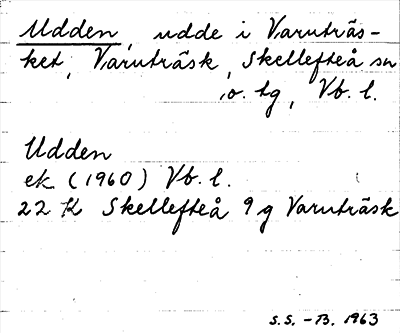 Udden, udde i Varuträs-
ket, Varuträsk, Skellefteå sn
o. tg, Vb. l.
Udden
ek (1960) Vb. l.
22 K Skellefteå 9 g Varuträsk
S.S. - B. 1963